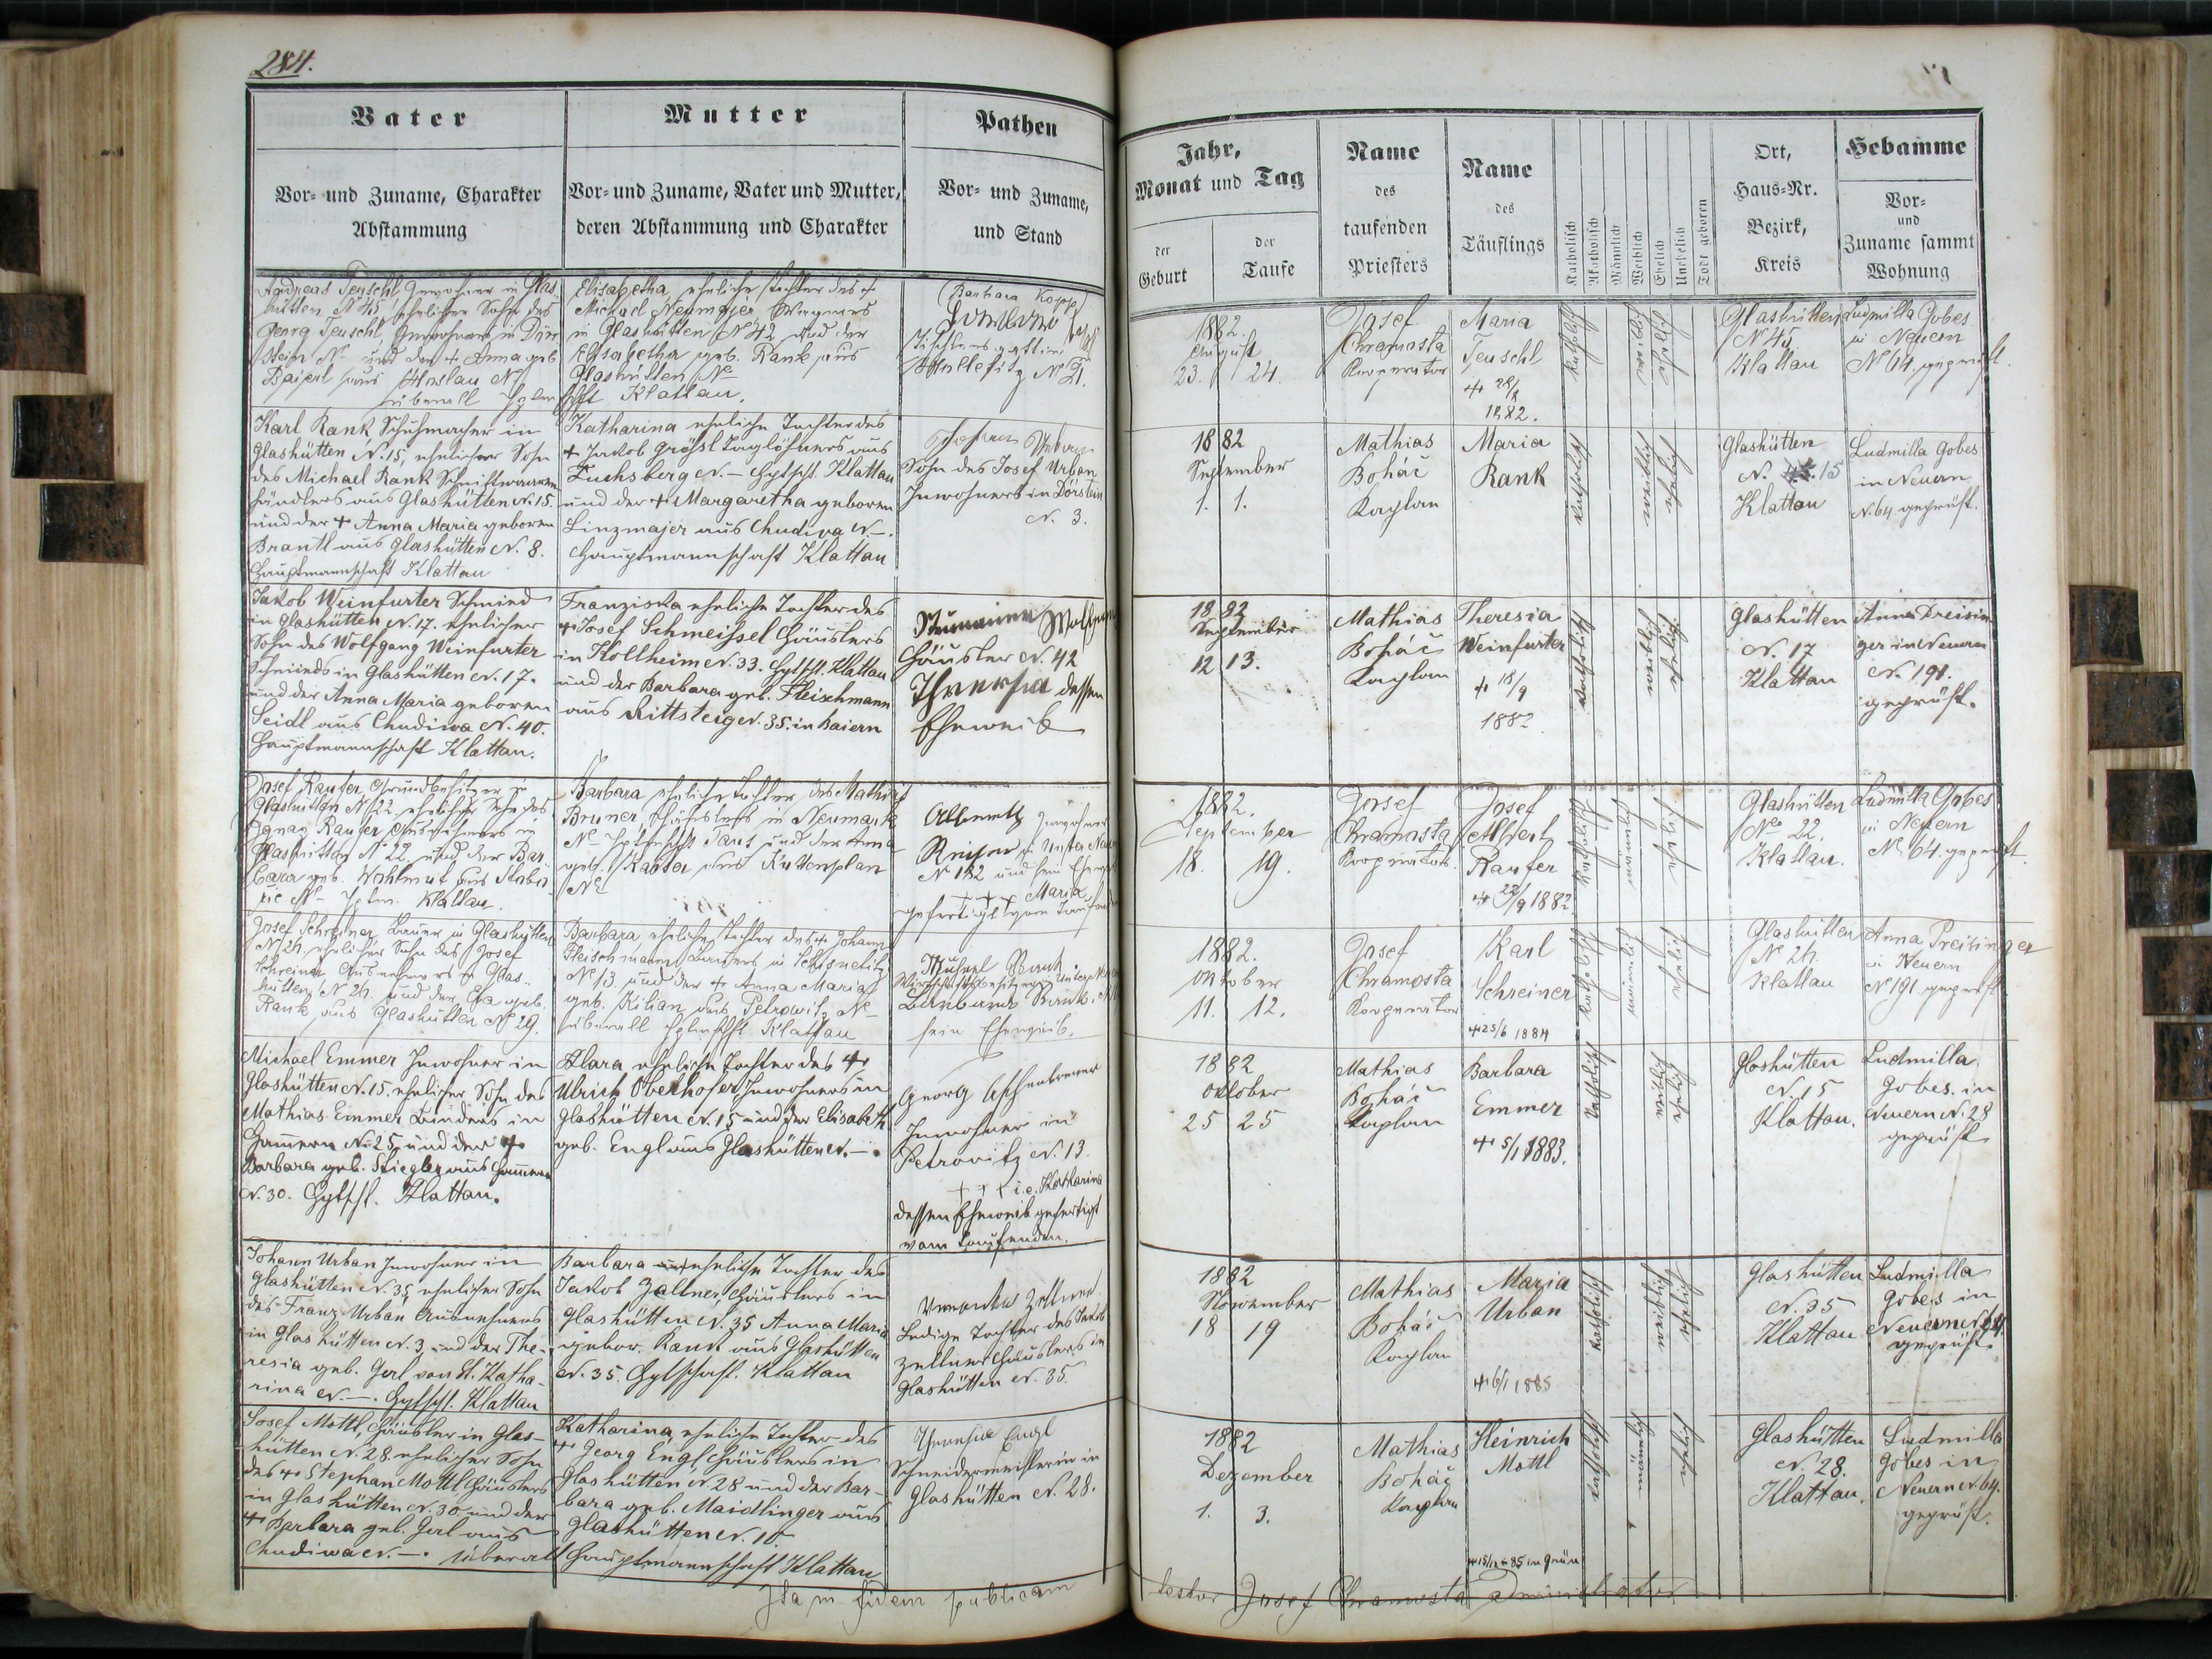 284.
Vater
Vor- und Zuname, Charakter
Abstammung
Mutter
Vor- und Zuname, Vater und Mutter,
deren Abstammung und Charakter
Pathen
Vor- und Zuname,
und Stand
Andreas Teuschl Inwohner in Glas
hütten N 45, ehelicher Sohn des
Georg Teuschl, Inwohners in Dörr
stein N– und der + Anna geb.
überall
Elisabetha, eheliche Tochter des +
Michael Neumajer, Wagners
in Glashütten N 42 und der
Elisabetha geb. Rank aus
Glashütten No
Klattau.
(Barbara Kopp)
N 21.
Karl Rank Schuhmacher in
Glashütten N. 15, ehelicher Sohn
des Michael Rank Schnittwaaren
händlers aus Glashütten N. 15.
und der + Anna Maria geboren
Brantl aus Glashütten N. 8.
Hauptmannschaft Klattau
Katharina eheliche Tochter des
+ Jakob Größl Taglöhners aus
Fuchsberg N. – Hptsch. Klattau
und der + Margaretha geboren
Linzmajer aus Chudiva N. –.
Hauptmannschaft Klattau
Johann Urban
Sohn des Josef Urban
Inwohners in Dörstein
N. 3.
Jakob Weinfurter Schmied
in Glashütten N. 17. ehelicher
Sohn des Wolfgang Weinfurter
Schmieds in Glashütten N. 17.
und der Anna Maria geboren
Seidl aus Chudiwa N. 40.
Hauptmannschaft Klattau.
Franziska eheliche Tochter des
+ Josef Schmeissel Häuslers
in Kollheim N. 33. Hptsch. Klattau
und der Barbara geb. Fleischmann
aus Rittsteig N. 35. in Baiern
Häusler N. 42
Theresia dessen
Eheweib
Josef Raufer Grundbesitzer in
Glashütten N 22 ehelicher Sohn des
Ignaz Raufer Ausnehmers in
Glashütten N 22. und der Bar-
bara geb. Wohlmut aus
N– Klattau
Barbara, eheliche Tochter des Mathias
Bruner, Häuslers in Neumark
No Hptmschft Taus und der Anna
geb. aus Kuttenplan
No
Albrecht Inwohner
N 182 und sein Eheweib
+ + + Maria
gefertigt vom Taufenden
Josef Schreiner Bauer in Glashütten
N 24, ehelicher Sohn des Josef
Schreiner Ausnehmers in Glas-
hütten N 24. und der Eva geb.
Rank aus Glashütten No 29.
Barbara, eheliche Tochter des + Johann
Fleischmann, Bauers in
N 13 und der + Anna Maria
geb. Kilian aus Petrowitz No
überall Hptmschft Klattau
Michael Rank
Wirtschaftsbesitzer
Barbara Rank,
sein Eheweib.
Michael Emmer Inwohner in
Glashütten N. 15. ehelicher Sohn des
Mathias Emmer Binders in
Hammern N. 25 und der +
Barbara geb. Stiegler aus Hammern
N. 30. Hptsch. Klattau.
Klara, eheliche Tochter des +
Ulrich Oberhofer, Inwohners in
Glashütten N. 15 und der Elisabeth
geb. Engl aus Glashütten N. –.
Georg Aschenbrenner
Inwohner in
Petrovitz N. 13.
+ + + i. e. Katharina
dessen Eheweib gefertigt
vom Taufenden.
Johann Urban Inwohner in
Glashütten N. 35 ehelicher Sohn
des Franz Urban Ausnehmers
in Glashütten N. 3 und der The-
resia geb. Gerl von St. Katha-
rina N. –. Hptsch. Klattau
Barbara eheliche Tochter des
Jakob Zellner, Häuslers in
Glashütten N. 35 Anna Maria
gebor. Rank aus Glashütten
N. 35. Hptschaft. Klattau
Zellner
Ledige Tochter des Jakob
Zellner Häuslers in
Glashütten N. 35.
Josef Mottl, Häusler in Glas-
hütten N. 28. ehelicher Sohn
des + Stephan Mottl Häuslers
in Glashütten N. 30 und der
+ Barbara geb. Gerl aus
Chudiwa N. –. überall Hauptmannschaft Klattau
Katharina, eheliche Tochter des
+ Georg Engl, Häuslers in
Glashütten N. 28 und der Bar-
bara geb. Maidlinger aus
Glashütten N. 10
Theresia Engl
Schneidermeisterin in
Glashütten N. 28.
Ita in fidem publicam
Jahr,
Monat und Tag
der
Geburt
der
Taufe
Name
des
taufenden
Priesters
Name
des
Täuflings
Katholisch
Akatholisch
Männlich
Weiblich
Ehelich
Unehelich
Todt geboren
Ort,
Haus-Nr.
Bezirk,
Kreis
Hebamme
Vor-
und
Zuname sammt
Wohnung
1882.
August
23. 24.
Josef
Chramosta
Kooperator
Maria
Teuschl
+ 28/8
1882.
katholisch
weiblich
ehelich
Glashütten
N 45
Klattau
Ludmilla Gobes
in Neuern
No 64. geprüft.
1882
September
1. 1.
Mathias
Boháč
Kaplan
Maria
Rank
katholisch
weiblich
ehelich
Glashütten
N. 15
Klattau
Ludmilla Gobes
in Neuern
N. 64. geprüft.
1882
September
12 13.
Mathias
Boháč
Kaplan
Theresia
Weinfurter
+ 18/9
1882
katholisch
weiblich
ehelich
Glashütten
N. 17
Klattau
Anna Preisin
ger in Neuern
N. 191.
geprüft.
1882.
September
18. 19.
Josef
Chramosta
Kooperator
Josef
Albert
Raufer
+ 22/9 1882
katholisch
männlich
ehelich
Glashütten
No 22.
Klattau.
Ludmilla Gobes
in Neuern
No 64. geprüft.
1882.
Oktober
11. 12.
Josef
Chramosta
Kooperator
Karl
Schreiner
+ 25/6 1884
katholisch
männlich
ehelich
Glashütten
N 24.
Klattau
Anna Preisinger
in Neuern
No 191 geprüft
1882
Oktober
25 25
Mathias
Boháč
Kaplan
Barbara
Emmer
+ 5/1 1883.
katholisch
weiblich
ehelich
Glashütten
N. 15
Klattau.
Ludmilla
Gobes. in
Neuern N. 28
geprüft
1882
November
18 19
Mathias
Boháč
Kaplan
Maria
Urban
+ 6/1 1885
katholisch
weiblich
ehelich
Glashütten
N. 35
Klattau
Ludmilla
Gobes in
Neuern N. 64.
geprüft.
1882
Dezember
1. 3.
Mathias
Boháč
Kaplan
Heinrich
Mottl
+ 15/12 85 in Grün
katholisch
männlich
ehelich
Glashütten
N. 28.
Klattau.
Ludmilla
Gobes in
Neuern N. 64.
geprüft.
testor Josef Chramosta Administrator